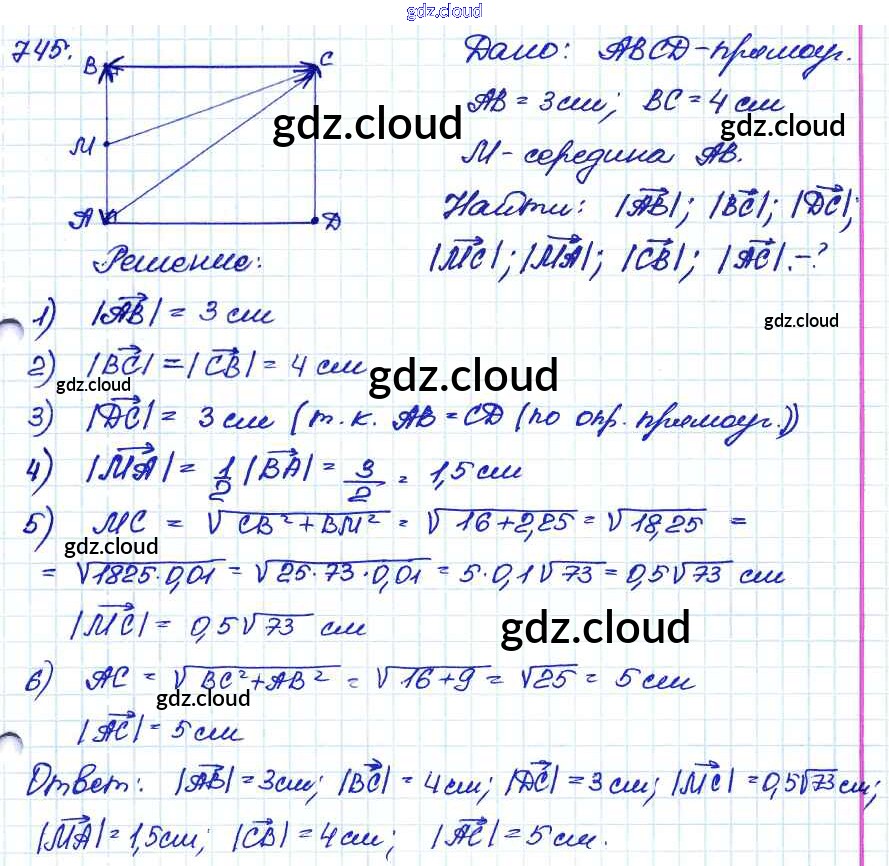 gdz.cloud
745.
B C
M
A D
gdz.cloud
Дано: ABCD - прямоуг.
AB = 3 см; BC = 4 см
gdz.cloud
M - середина AB.
Найти: |AB|; |BC|; |DC|;
|MC|; |MA|; |CB|; |AC|. - ?
Решение:
1) |AB| = 3 см
gdz.cloud
2) |BC| = |CB| = 4 см
gdz.cloud
gdz.cloud
3) |DC| = 3 см (т.к. AB = CD (по опр. прямоуг.))
4) |MA| = 1/2 |BA| = 3/2 = 1,5 см
5) MC = √CB² + BM² = √16 + 2,25 = √18,25 =
gdz.cloud
= √1825·0,01 = √25·73·0,01 = 5·0,1√73 = 0,5√73 см
|MC| = 0,5√73 см
gdz.cloud
6) AC = √BC² + AB² = √16 + 9 = √25 = 5 см
gdz.cloud
|AC| = 5 см
Ответ: |AB| = 3 см; |BC| = 4 см; |DC| = 3 см; |MC| = 0,5√73 см;
|MA| = 1,5 см; |CB| = 4 см; |AC| = 5 см.